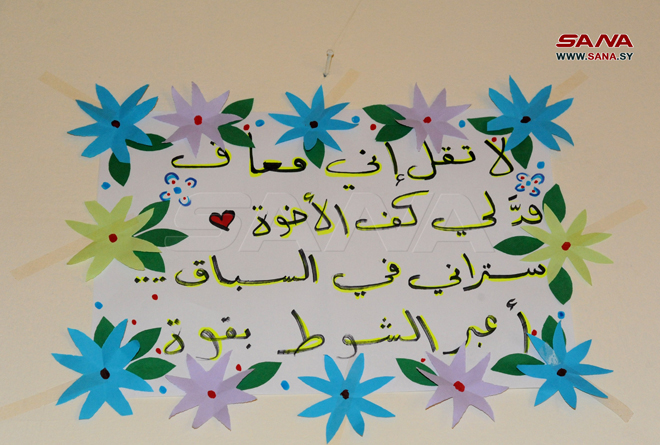 SANA
WWW.SANA.SY
لا تقل إني معاف
مدَّ لي كف الأخوة
ستراني في السباق ....
أعبر الشوط بقوة
SANA